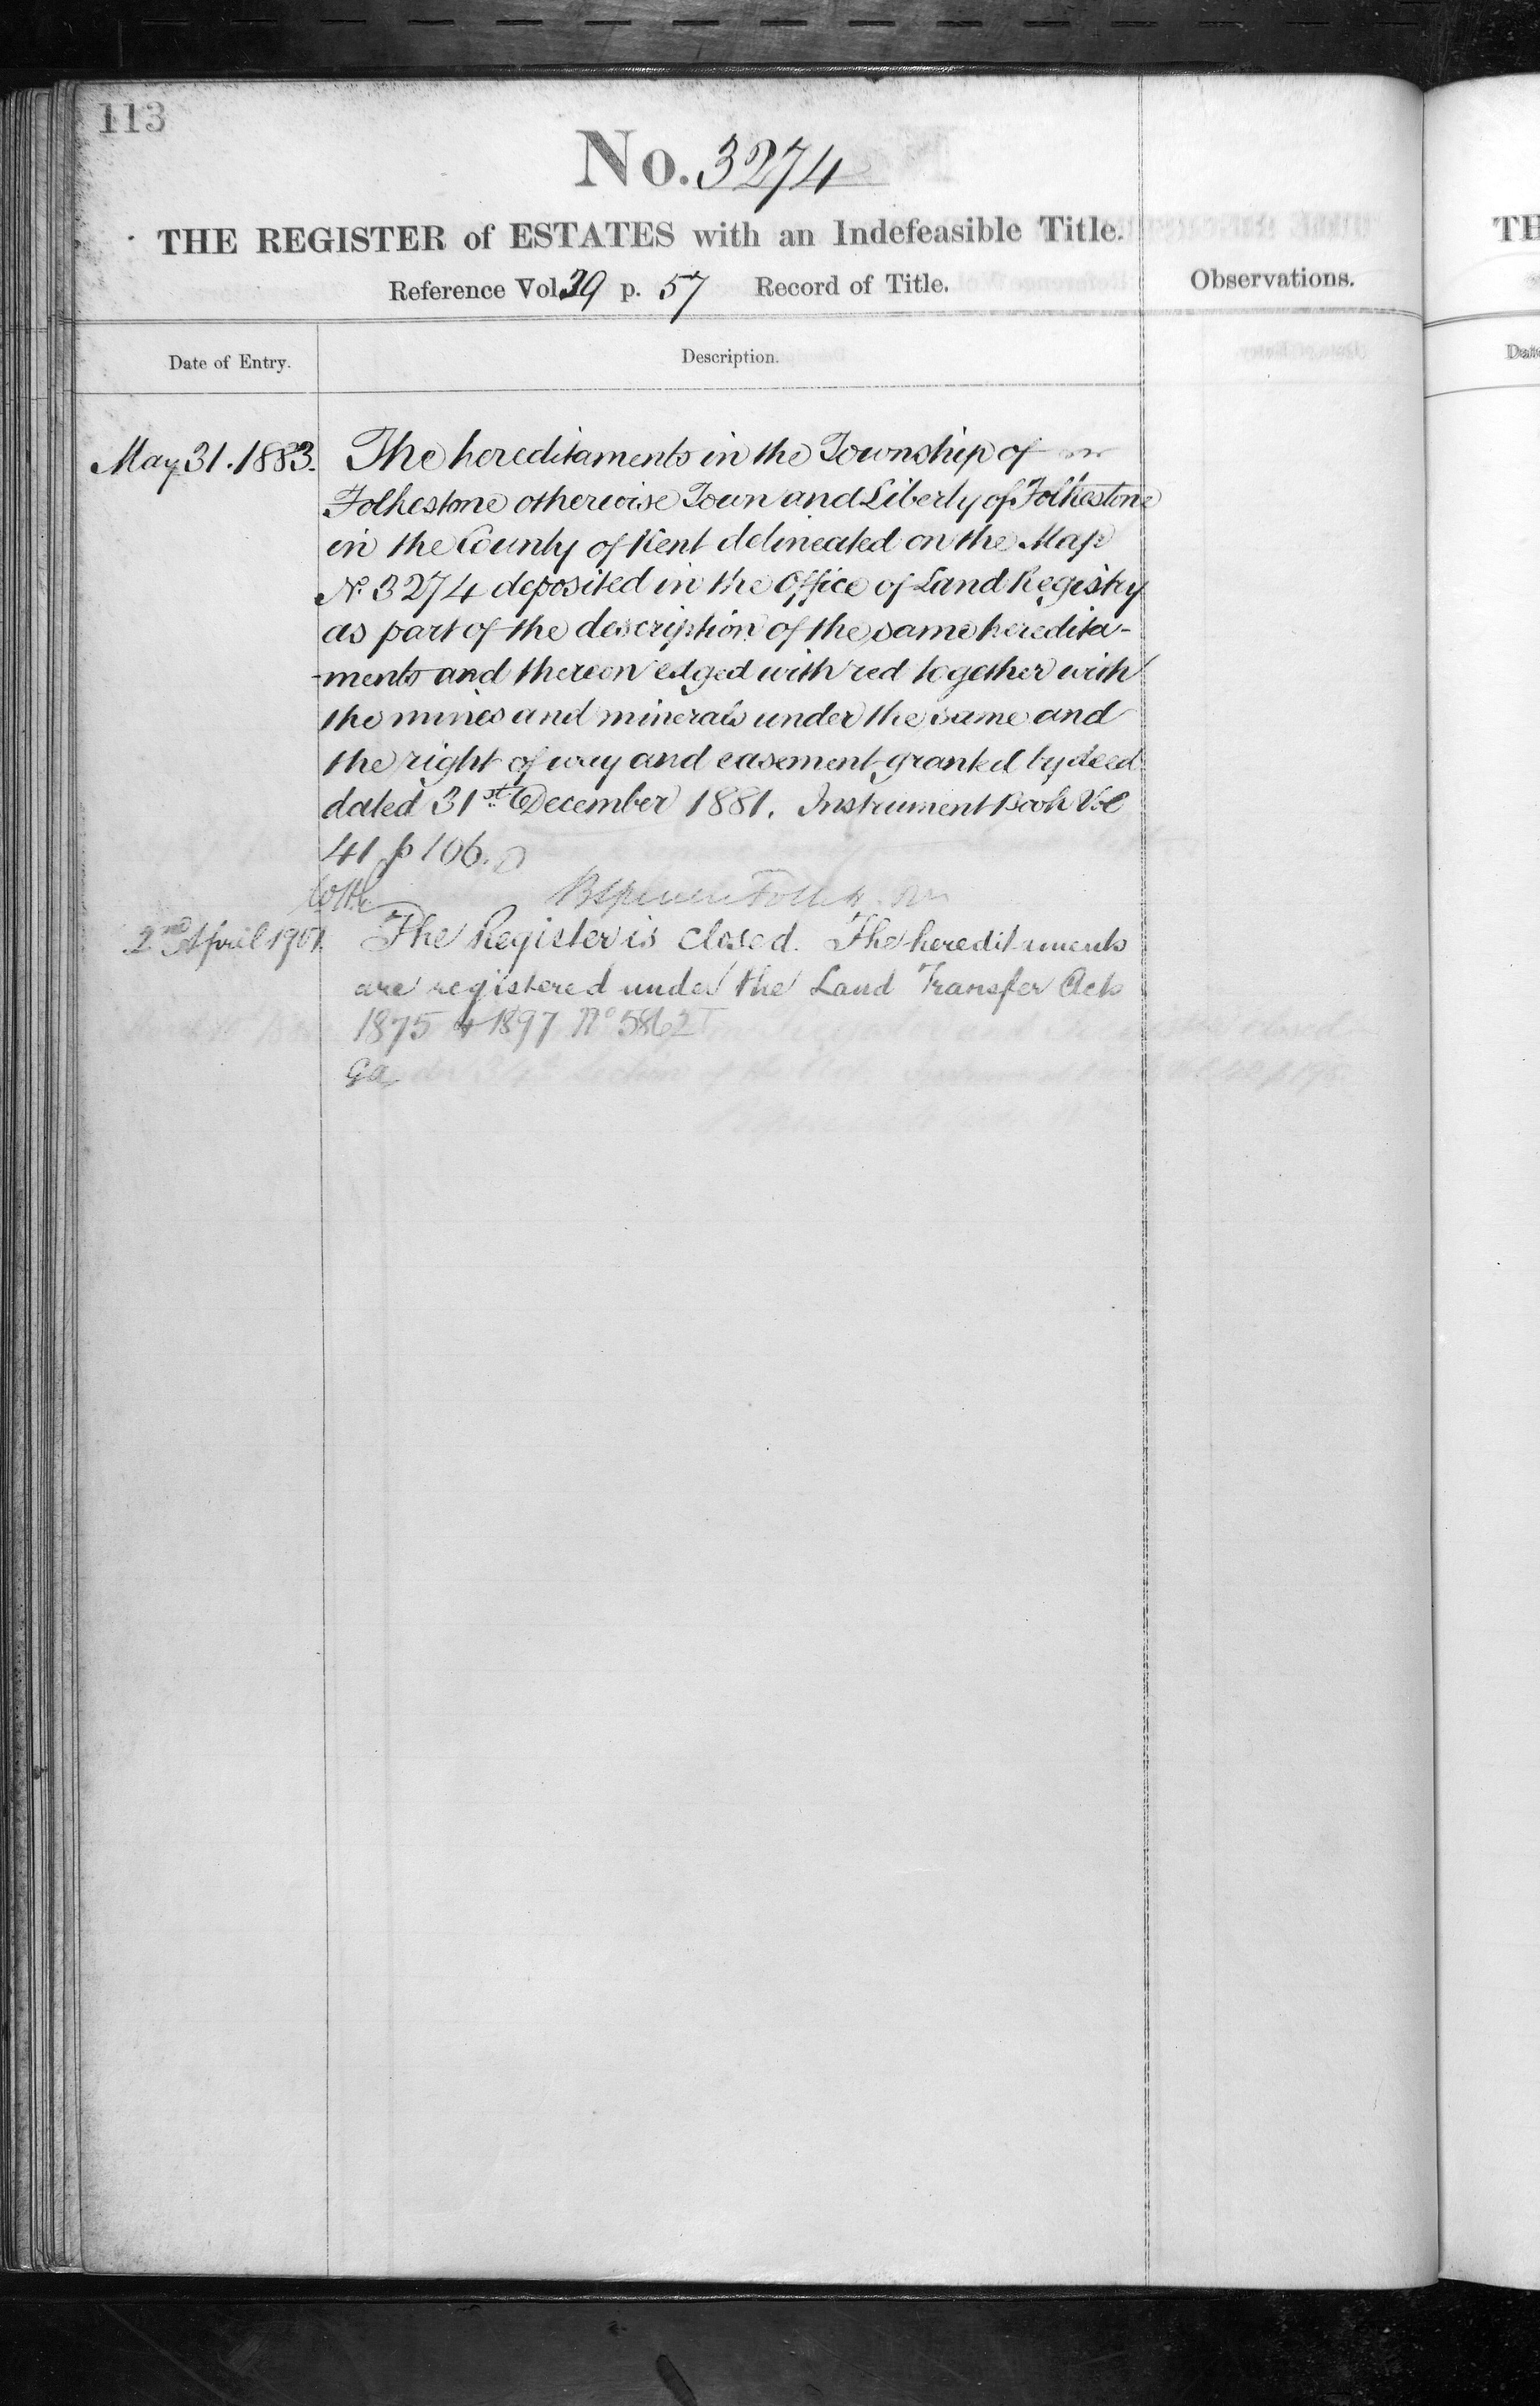 113
No. 3274
THE REGISTER of ESTATES with an Indefeasible Title.
Reference Vol. 39 p. 57 Record of Title.
Observations.
Date of Entry.
Description.
May 31. 1883.
The hereditaments in the Township of
Folkestone otherwise Town and Liberty of Folkestone
in the County of Kent delineated on the Map
No. 3274 deposited in the Office of Land Registry
as part of the description of the same heredita-
-ments and thereon edged with red together with
the mines and minerals under the same and
the right of way and easement granted by deed
dated 31st December 1881. Instrument Book Vol
41 p 106.
2nd April 1901.
The Register is closed. The hereditaments
are registered under the Land Transfer Acts
1875 & 1897 No 5862
TH